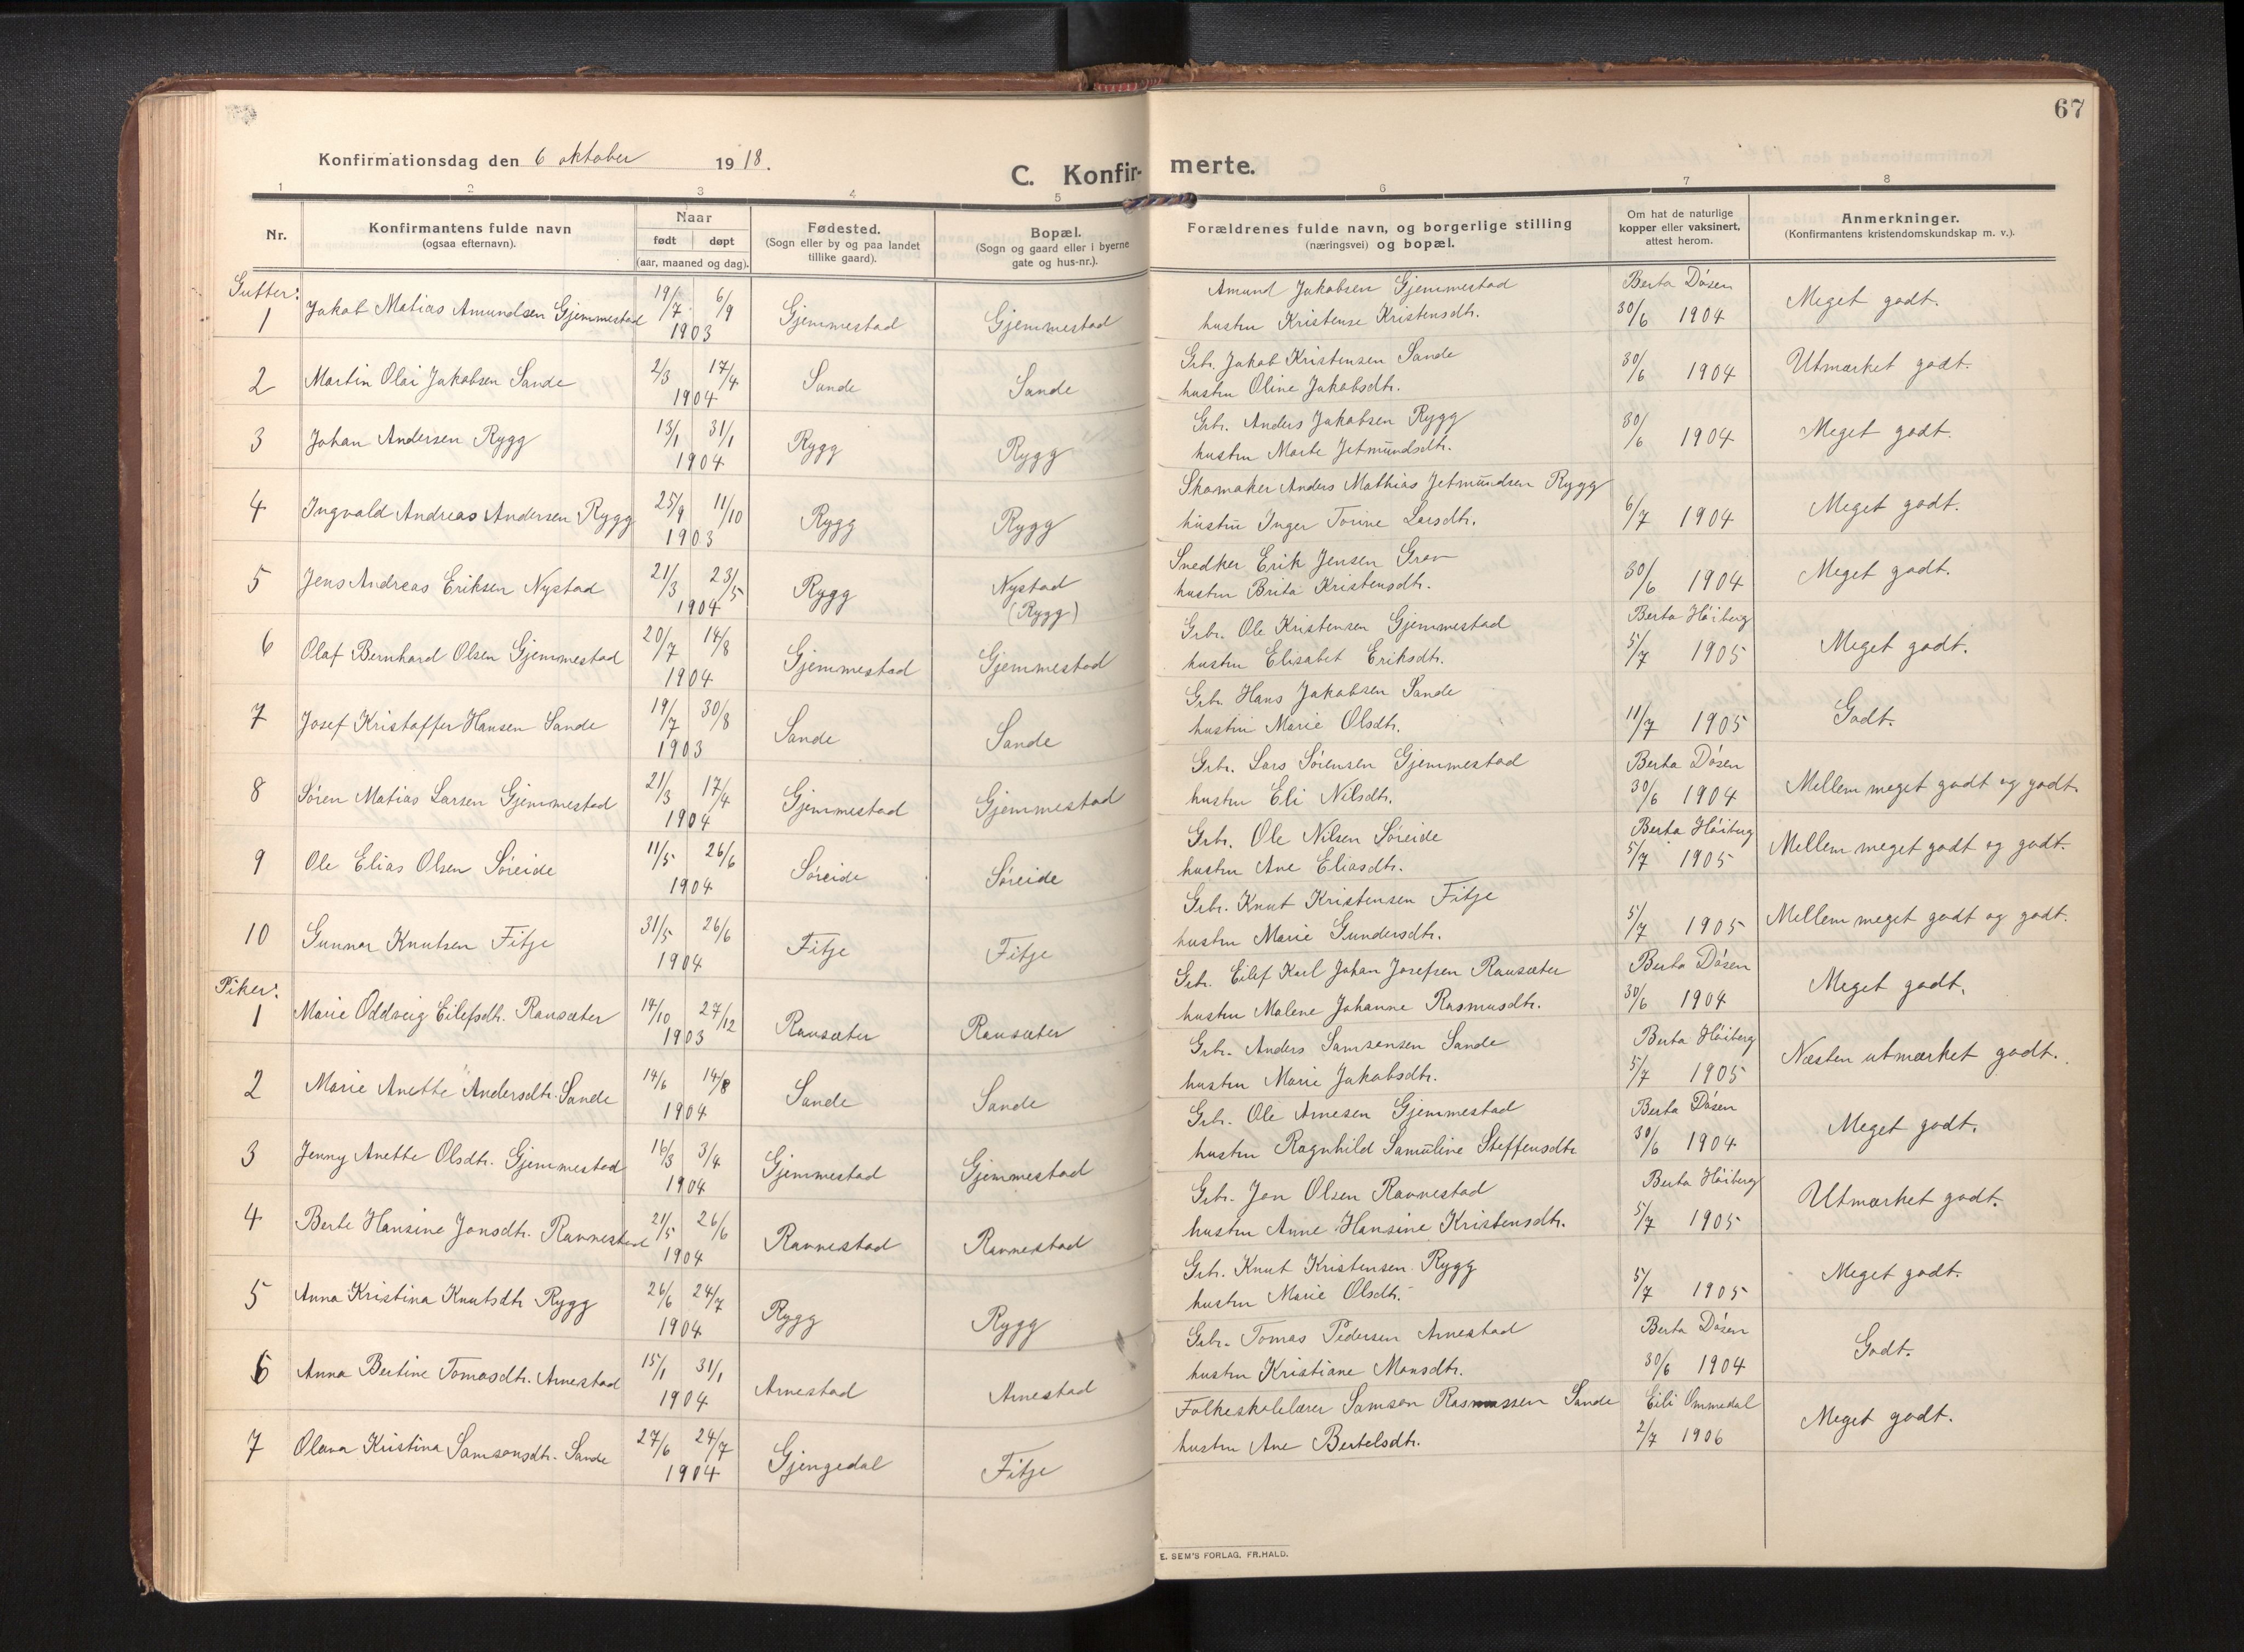 67
Konfirmationsdag den 6 oktober 1918.
C. Konfir-merte.
1 2 3 4 5 6 7 8
Nr.
Konfirmantens fulde navn
(ogsaa efternavn).
Naar
født døpt
(aar, maaned og dag).
Fødested.
(Sogn eller by og paa landet
tillike gaard).
Bopæl.
(Sogn og gaard eller i byerne
gate og hus-nr.).
Forældrenes fulde navn, og borgerlige stilling
(næringsvei) og bopæl.
Om hat de naturlige
kopper eller vaksinert,
attest herom.
Anmerkninger.
(Konfirmantens kristendomskundskap m. v.).
Gutter:
1 Jakob Matias Amundsen Gjemmestad 19/7 6/9 1903 Gjemmestad Gjemmestad
Amund Jakobsen Gjemmestad
hustru Kristense Kristensdtr.
Berta Døsen
30/6 1904 Meget godt.
2 Martin Olai Jakobsen Sande 2/3 17/4 1904 Sande Sande
Grbr. Jakob Kristensen Sande
hustru Oline Jakobsdtr.
30/6 1904 Utmærket godt.
3 Johan Andersen Rygg 13/1 31/1 1904 Rygg Rygg
Grbr. Anders Jakobsen Rygg
hustru Marte Jetmundsdtr.
30/6 1904 Meget godt.
4 Ingvald Andreas Andersen Rygg 25/9 11/10 1903 Rygg Rygg
Skomaker Anders Mathias Jetmundsen Rygg
hustru Inger Torine Larsdtr.
6/7 1904 Meget godt.
5 Jens Andreas Eriksen Nystad 21/3 23/5 1904 Rygg Nystad
(Rygg)
Snedker Erik Jensen Grov
hustru Brita Kristensdtr.
30/6 1904 Meget godt.
6 Olaf Bernhard Olsen Gjemmestad 20/7 14/8 1904 Gjemmestad Gjemmestad
Grbr. Ole Kristensen Gjemmestad
hustru Elisabet Eriksdtr.
Berta Høiberg
5/7 1905 Meget godt.
7 Josef Kristoffer Hansen Sande 19/7 30/8 1903 Sande Sande
Grbr. Hans Jakobsen Sande
hustru Marie Olsdtr.
11/7 1905 Godt.
8 Søren Matias Larsen Gjemmestad 21/3 17/4 1904 Gjemmestad Gjemmestad
Grbr. Lars Sørensen Gjemmestad
hustru Eli Nilsdtr.
Berta Døsen
30/6 1904 Mellem meget godt og godt.
9 Ole Elias Olsen Søreide 11/5 26/6 1904 Søreide Søreide
Grbr. Ole Nilsen Søreide
hustru Ane Eliasdtr.
Berta Høiberg
5/7 1905 Mellem meget godt og godt.
10 Gunnar Knutsen Fitje 31/5 26/6 1904 Fitje Fitje
Grbr. Knut Kristensen Fitje
hustru Marie Gundersdtr.
5/7 1905 Mellem meget godt og godt.
Piker:
1 Marie Oddveig Eilefsdtr. Ransæter 14/10 27/12 1903 Ransæter Ransæter
Grbr. Eilef Karl Johan Josefsen Ransæter
hustru Malene Johanne Rasmusdtr.
Berta Døsen
30/6 1904 Meget godt.
2 Marie Anette Andersdtr. Sande 14/6 14/8 1904 Sande Sande
Grbr. Anders Samsonsen Sande
hustru Marie Jakobsdtr.
Berta Høiberg
5/7 1905 Næsten utmærket godt.
3 Jenny Anette Olsdtr. Gjemmestad 16/3 3/4 1904 Gjemmestad Gjemmestad
Grbr. Ole Arnesen Gjemmestad
hustru Ragnhild Samuline Steffensdtr
Berta Døsen
30/6 1904 Meget godt.
4 Berte Hansine Jonsdtr. Ravnestad 21/5 26/6 1904 Ravnestad Ravnestad
Grbr. Jon Olsen Ravnestad
hustru Anne Hansine Kristensdtr.
Berta Høiberg
5/7 1905 Utmærket godt.
5 Anna Kristina Knutsdtr Rygg 26/6 24/7 1904 Rygg Rygg
Grbr. Knut Kristensen Rygg
hustru Marie Olsdtr.
5/7 1905 Meget godt.
6 Anna Bertine Tomasdtr. Arnestad 15/1 31/1 1904 Arnestad Arnestad
Grbr. Tomas Pedersen Arnestad
hustru Kristiane Monsdtr.
Berta Døsen
30/6 1904 Godt.
7 Olava Kristina Samsonsdtr. Sande 27/6 24/7 1904 Gjengedal Fitje
Folkeskolelærer Samson Rasmussen Sande
hustru Ane Bertelsdtr.
Eili Ommedal
2/7 1906 Meget godt.
E. SEM'S FORLAG, FR.HALD.